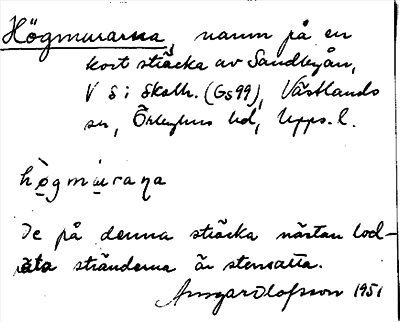 Högmurarna, namn på en
kort sträcka av Sandbyån,
V S i Skolh. (Gs99), Västlands
sn, Örbyhus hd, Upps. l.
högmurana
De på denna sträcka nästan lod-
räta stränderna är stensatta.
Ansgar Olofsson 1951